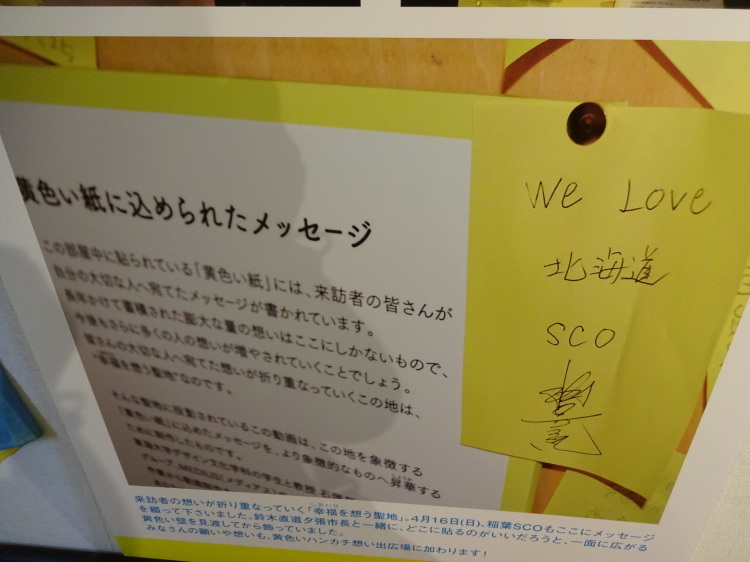 黄色い紙に込められたメッセージ
この部屋中に貼られている「黄色い紙」には、来訪者の皆さんが
自分の大切な人へ宛てたメッセージが書かれています。
長年かけて蓄積された膨大な量の想いはここにしかないもので、
今後もさらに多くの人の想いが増やされていくことでしょう。
皆さんの大切な人へ宛てた想いが折り重なっていくこの地は、
"幸福を想う聖地"なのです。
そんな聖地に投影されているこの動画は、この地を象徴する
「黄色い紙」に込めたメッセージを、より象徴的なものへ昇華する
ために制作したものです。
東海大学デザイン文化学科の学生と教授、石塚
グループ、MEDIUS(メディアス)
We Love
北海道
SCO
来訪者の想いが折り重なっていく「幸福を想う聖地」。4月16日(日)、稲葉SCOもここにメッセージ
を綴って下さいました。鈴木直道夕張市長と一緒に、どこに貼るのがいいだろうと、一面に広がる
黄色い壁を見渡してから飾っていました。
みなさんの願いや想いも、黄色いハンカチ想い出広場に加わります!